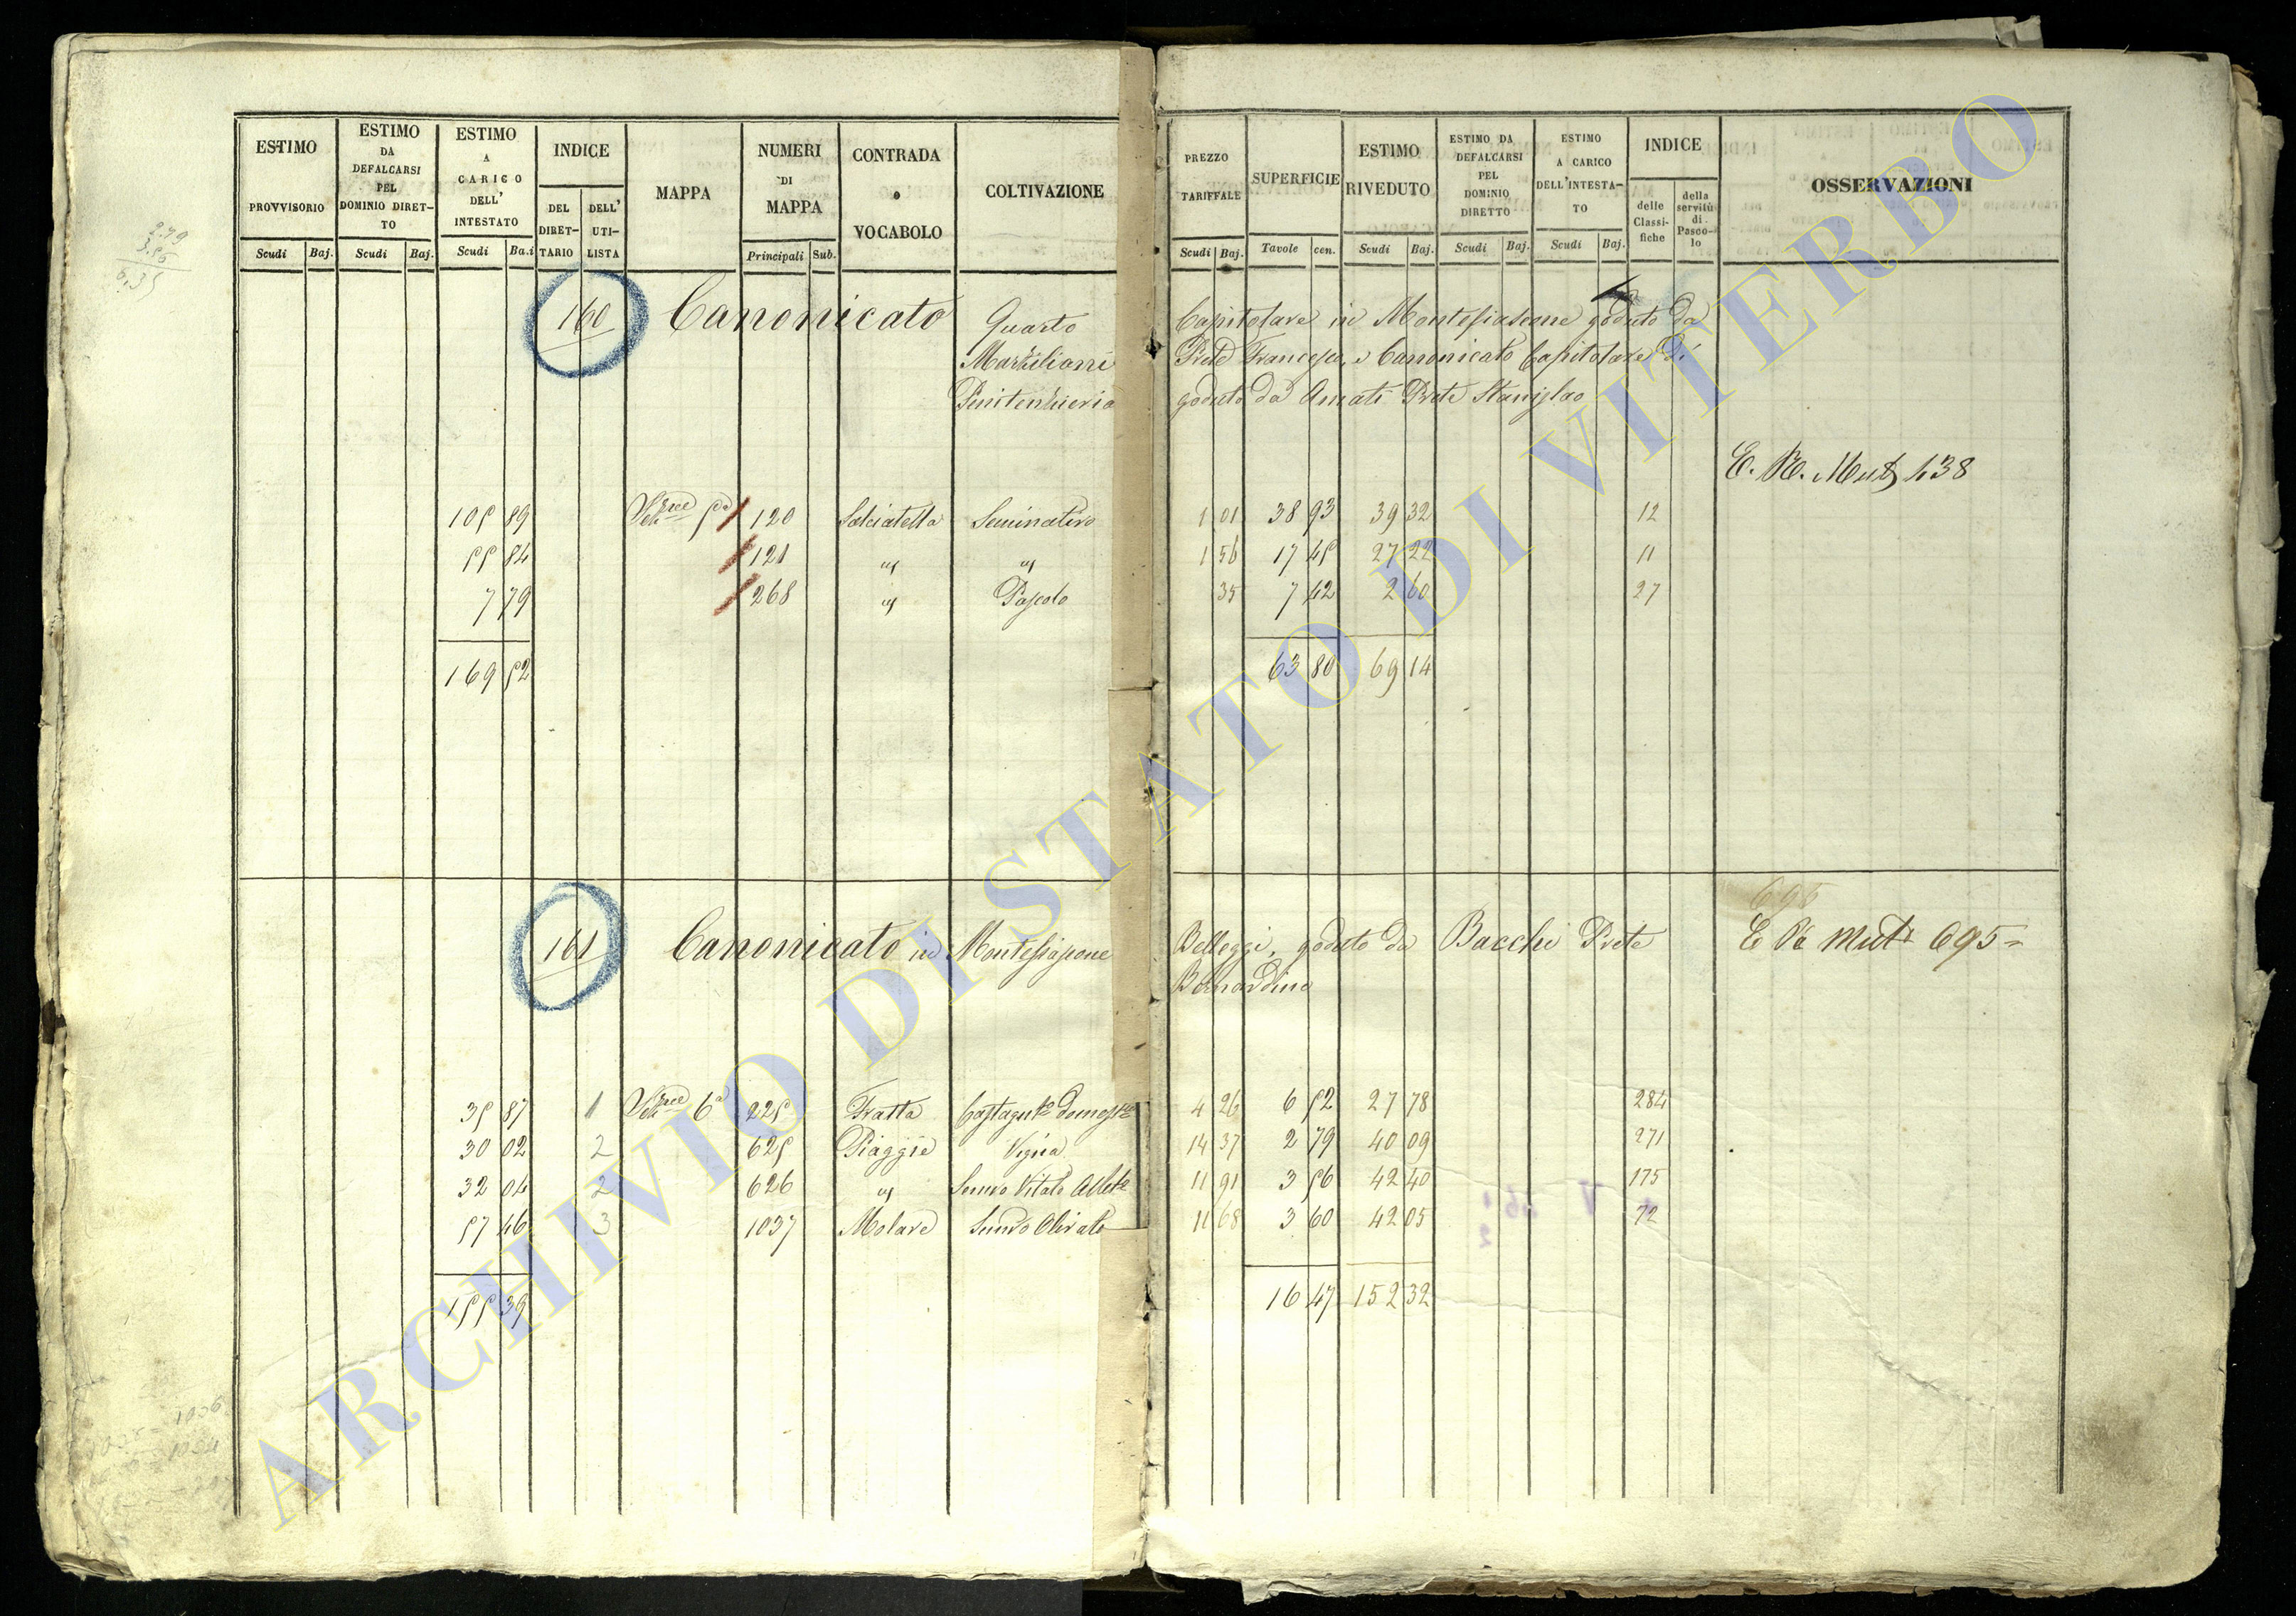 ESTIMO PROVVISORIO Scudi Baj.
ESTIMO DA DEFALCARSI PEL DOMINIO DIRETTO Scudi Baj.
ESTIMO A CARICO DELL' INTESTATO Scudi Ba.i
INDICE DEL DIRETTARIO DELL' UTILISTA
MAPPA
NUMERI DI MAPPA Principali Sub.
CONTRADA o VOCABOLO
COLTIVAZIONE
PREZZO TARIFFALE Scudi Baj.
SUPERFICIE Tavole cen.
ESTIMO RIVEDUTO Scudi Baj.
ESTIMO DA DEFALCARSI PEL DOMINIO DIRETTO Scudi Baj.
ESTIMO A CARICO DELL'INTESTATO Scudi Baj.
INDICE delle Classifiche della servitù di Pascolo
OSSERVAZIONI
2.79
3.56
6.35
160 Canonicato Quarto Capitolare in Montefiascone goduto da
Prete Francesco, e Canonicato Capitolare di
Penitenzieria goduto da Amati Prete Stanislao
E. R. Mut 438
105 89 Sez 5a 120 Salciatella Seminativo 1 01 38 93 39 32 12
55 84 121 " " 1 56 17 45 27 22 11
7 79 268 " Pascolo 35 7 42 2 60 27
169 52 63 80 69 14
695
161 Canonicato in Montefiascone Belleggi, goduto da Bacchi Prete E Va Mut 695=
Bernardino
35 87 1 6a 225 Fratta Castagnto domesto 4 26 6 52 27 78 284
30 02 2 625 Piaggie Vigna 14 37 2 79 40 09 271
32 04 2 626 " Semvo Vitato 11 91 3 56 42 40 175
57 46 3 1037 Molare Semvo Olivato 11 68 3 60 42 05 72
155 39 16 47 152 32
1036
1034
ARCHIVIO DI STATO DI VITERBO